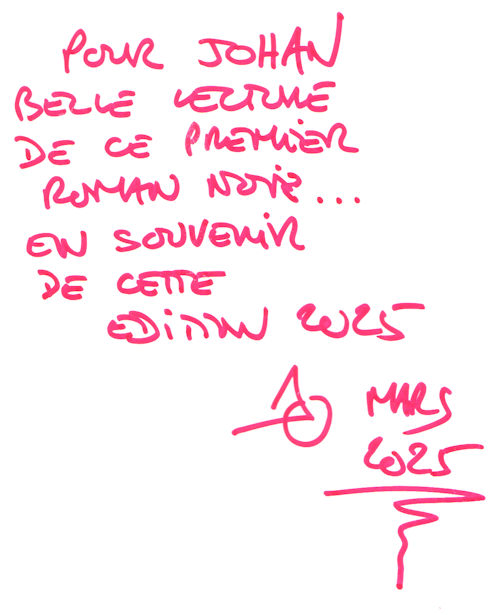 POUR JOHAN
BELLE LECTURE
DE CE PREMIER
ROMAN NOIR...
EN SOUVENIR
DE CETTE
EDITION 2025
MARS
2025